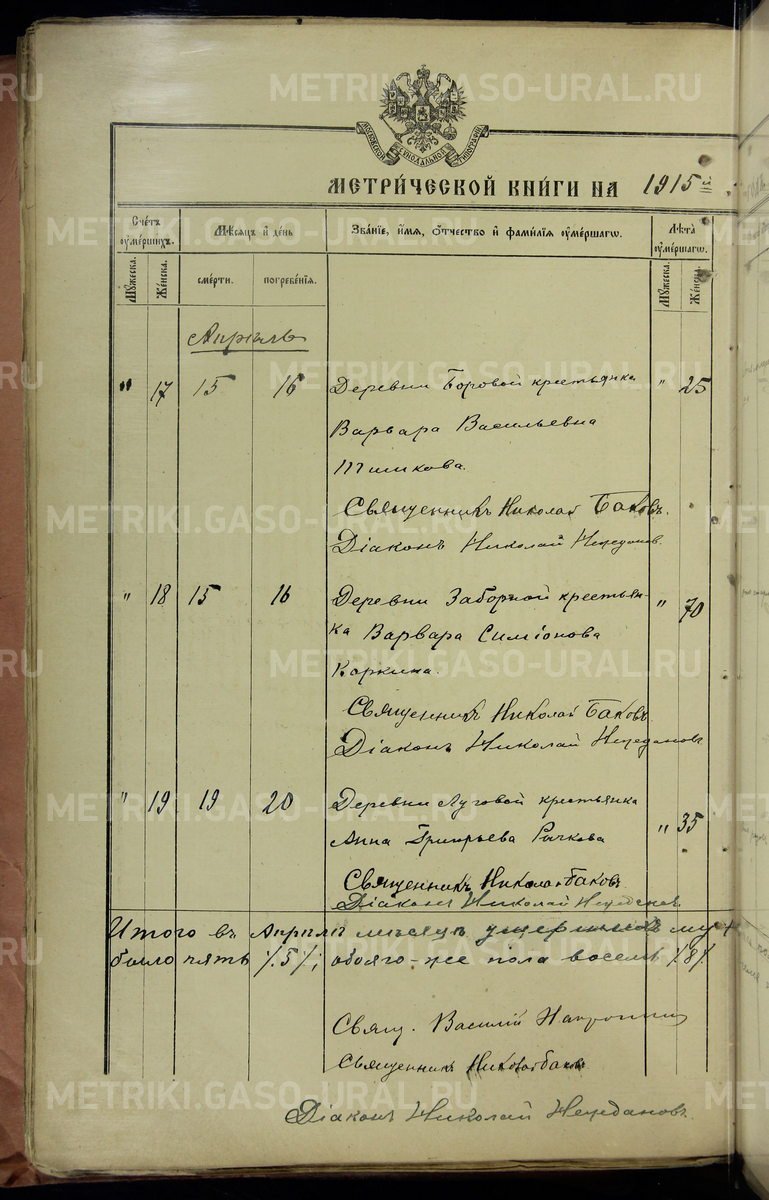 МОСКОВСКОЙ СѴНОДАЛЬНОЙ ТИПОГРАФІИ
МЕТРИ́ЧЕСКОЙ КНИ́ГИ НА 1915й
Сче́тъ ᲂу҆ме́ршихъ. Мѣ́сяцъ и҆ де́нь Зва́нїе, и҆́мя, ѻ҆́тчество и҆ фами́лїя ᲂу҆ме́ршагѡ. Лѣ́та ᲂу҆ме́ршагѡ.
Мꙋ́жеска. Же́нска. сме́рти. погребе́нїя. Мꙋ́жеска. Же́нска.
Апрѣль
" 17 15 16 Деревни Боровой крестьянка " 25
Варвара Васильевна
Священникъ Николай Баковъ.
Дiаконъ Николай Неуедановъ.
" 18 15 16 Деревни Заборной крестьян- " 70
ка Варвара Симiонова
Коркина.
Священникъ Николай Баковъ
Дiаконъ Николай Неуедановъ
" 19 19 20 Деревни Луговой крестьянка " 35
Анна Григорьева Рачкова
Священникъ Николай Баковъ
Дiаконъ Николай Неуедановъ
Итого въ Апрѣлѣ мѣсяцѣ умершихъ муж
было пять /.5./; обоего-же пола восемь /.8./
Свящ. Василiй
Священникъ Николай Баковъ
Дiаконъ Николай Неуедановъ.
METRIKI.GASO-URAL.RU